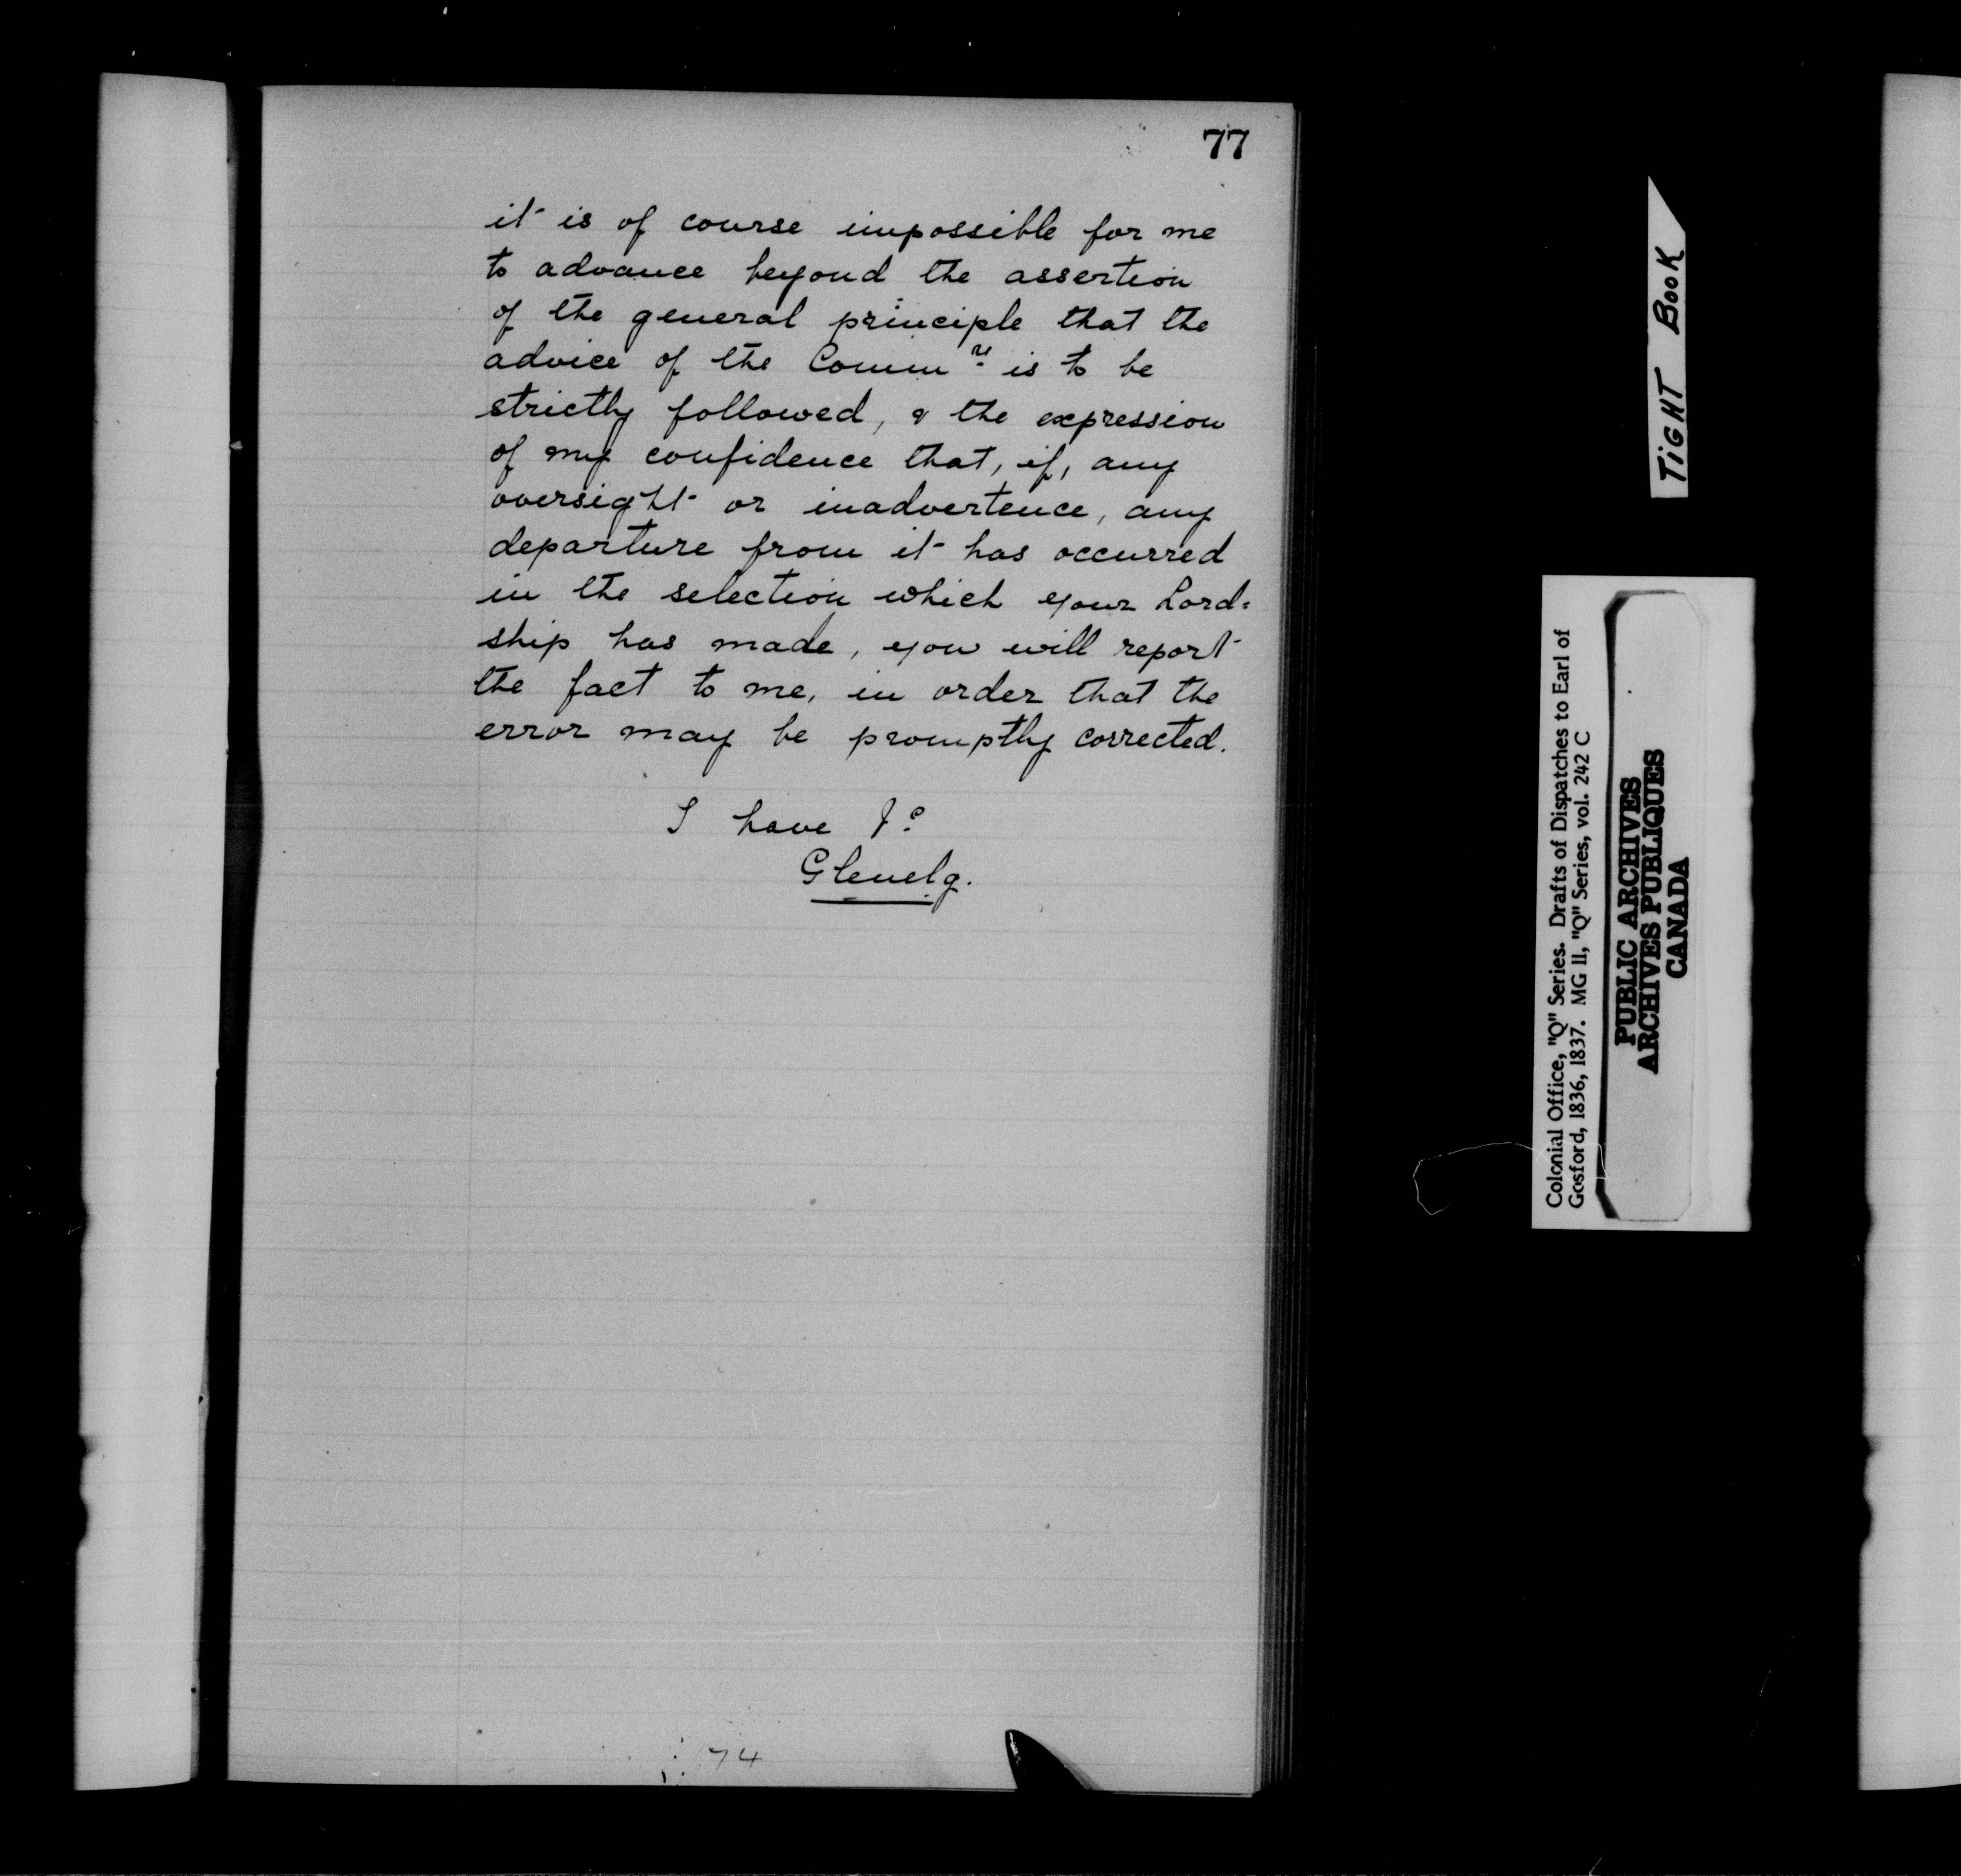 77
it is of course impossible for me
to advance beyond the assertion
of the general principle that the
advice of the Comm.rs is to be
strictly followed, & the expression
of my confidence that, if, any
oversight or inadvertence, any
departure from it has occurred
in the selection which your Lord=
ship has made, you will report
the fact to me, in order that the
error may be promptly corrected.
I have &c
Glenelg.
74
TIGHT BOOK
Colonial Office, "Q" Series. Drafts of Dispatches to Earl of
Gosford, 1836, 1837. MG 11, "Q" Series, vol. 242 C
PUBLIC ARCHIVES
ARCHIVES PUBLIQUES
CANADA